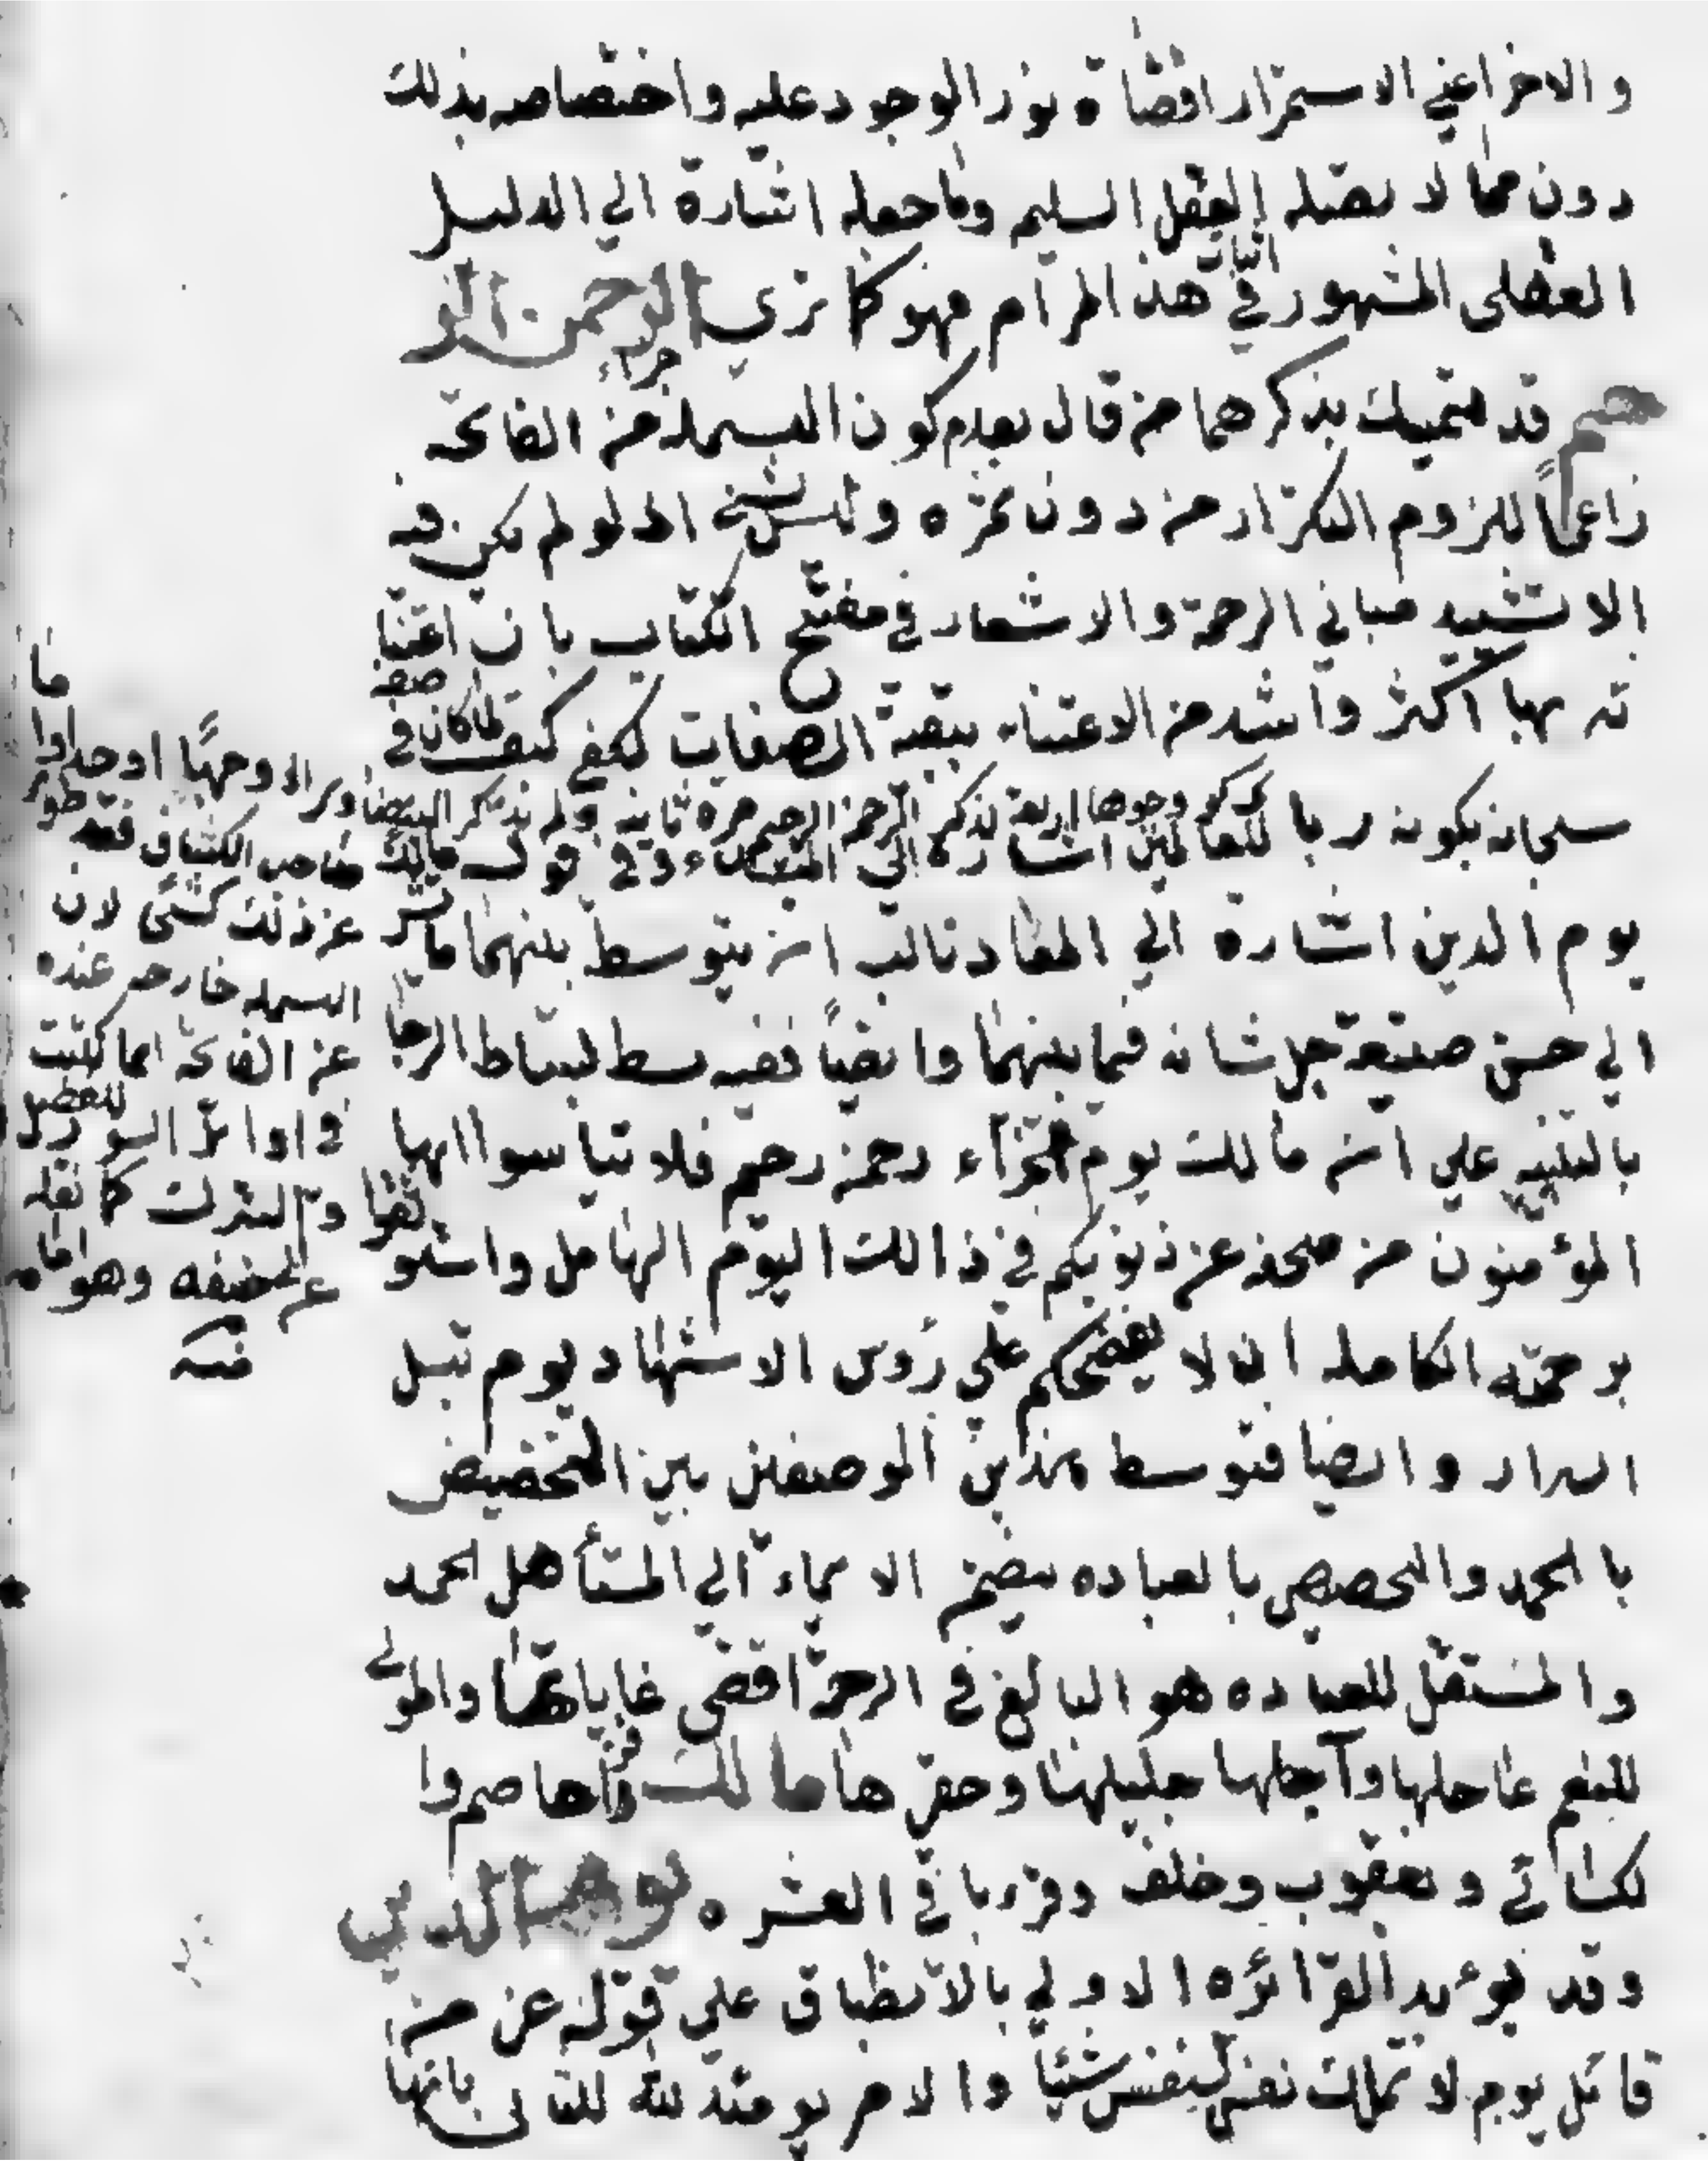 والاخر اعني الاستمرار افضاة نور الوجود عليه واختصاصه بذلك
دون مما لا يقبله العقل السليم وما جعله اشارة الي الدليل
العقلي المشهور في اثبات هذا المرام فهو كما تري الرحمن الر
حيم قد يتمسك بذكرهما من قال بعدم كون البسملة جزاء من الفاتحه
زاعماً للزوم التكرار من دون ثمره وليس بشيء اذ لو لم يكن فيه
الا تشييد مباني الرحمة والاشعار في مفتتح الكتاب بان اعتنا
ئه بها اكثر واشد من الاعتناء ببقية الصفات لكفي كيف
سبحانه بكونه ربا للعالمين اشارة الي المبدء وفي قوله مالك
يوم الدين اشارة الي المعاد ناسب ان يتوسط بينهما ما يشير
الي حسن صنيعه جل شانه فيما بينهما وايضاً ففيه بسط لبساط الرجا
بالتنبيه علي ان مالك يوم الجزآء رحمن رحيم فلا تيأسوا ايها
المؤمنون من صفحه عن ذنوبكم في ذالك اليوم الهايل وا ثقوا
برحمته الكامله ان لا يفضحكم علي رؤس الاشهاد يوم تبلي
السراير وايضا فتوسط هذين الوصفين بين التخصيص
بالحمد والتخصيص بالعباده يتضمن الايماء الي المستأهل للحمد
والمستقل للعباده هو البالغ في الرحمة اقصي غاياتها والمولي
للنعم عاجلها وآجلها جليلها وحقيرها مالك قراها عاصم وا
لكسائي ويعقوب وخلف وقرء با في العشره يوم الدين
وقد يؤيد القرائه الاولي بالانطباق علي قوله عز من
قائل يوم لا تملك نفس لنفس شيئاً والامر يومئذ لله للتالي بانها
لما كان في صفه
ذكر وجوها اربعة لذكر الرحمن الرحيم مرة ثانيه ولم يذكر البيضاوي الا وجهًا واحدا واما
صاحب الكشاف فقد طوي
عن ذلك كشحًا لان
البسمله خارجه عنده
عن الفاتحه انما كتبت
في اوايل السور للفصل
والتبرك كما نقله
عن ابي حنيفه وهو امامه
منه